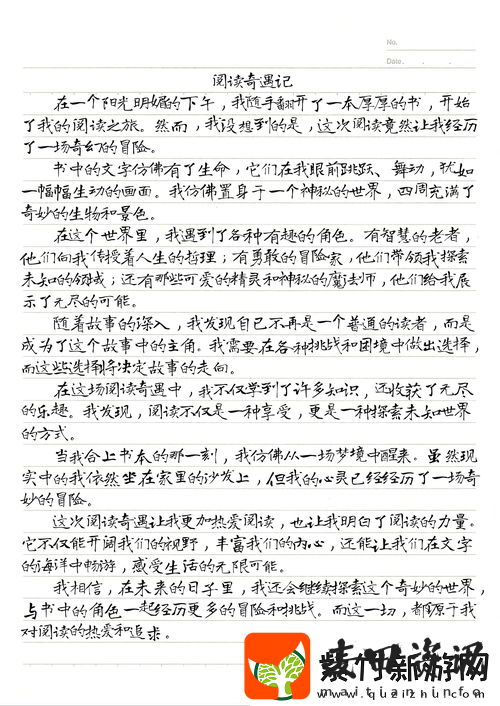 No.
Date.
阅读奇遇记
在一个阳光明媚的下午，我随手翻开了一本厚厚的书，开始
了我的阅读之旅。然而，我没想到的是，这次阅读竟然让我经历
了一场奇幻的冒险。
书中的文字仿佛有了生命，它们在我眼前跳跃、舞动，犹如
一幅幅生动的画面。我仿佛置身于一个神秘的世界，四周充满了
奇妙的生物和景色。
在这个世界里，我遇到了各种有趣的角色。有智慧的老者，
他们向我传授着人生的哲理；有勇敢的冒险家，他们带领我探索
未知的领域；还有那些可爱的精灵和神秘的魔法师，他们给我展
示了无尽的可能。
随着故事的深入，我发现自己不再是一个普通的读者，而是
成为了这个故事中的主角。我需要在各种挑战和困境中做出选择，
而这些选择将决定故事的走向。
在这场阅读奇遇中，我不仅学到了许多知识，还收获了无尽
的乐趣。我发现，阅读不仅是一种享受，更是一种探索未知世界
的方式。
当我合上书本的那一刻，我仿佛从一场梦境中醒来。虽然现
实中的我依然坐在家里的沙发上，但我的心灵已经经历了一场奇
妙的冒险。
这次阅读奇遇让我更加热爱阅读，也让我明白了阅读的力量。
它不仅能开阔我们的视野，丰富我们的内心，还能让我们在文字
的海洋中畅游，感受生活的无限可能。
我相信，在未来的日子里，我还会继续探索这个奇妙的世界，
与书中的角色一起经历更多的冒险和挑战。而这一切，都源于我
对阅读的热爱和追求。
紫竹新游网